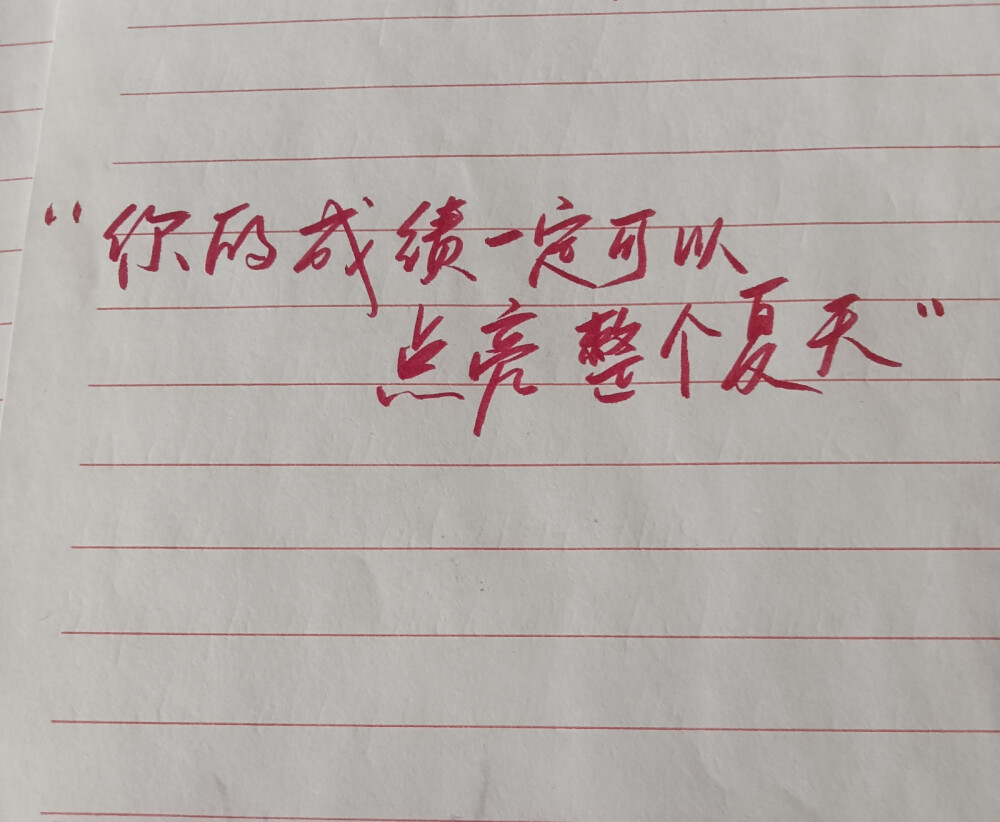 “你的成绩一定可以
点亮整个夏天”